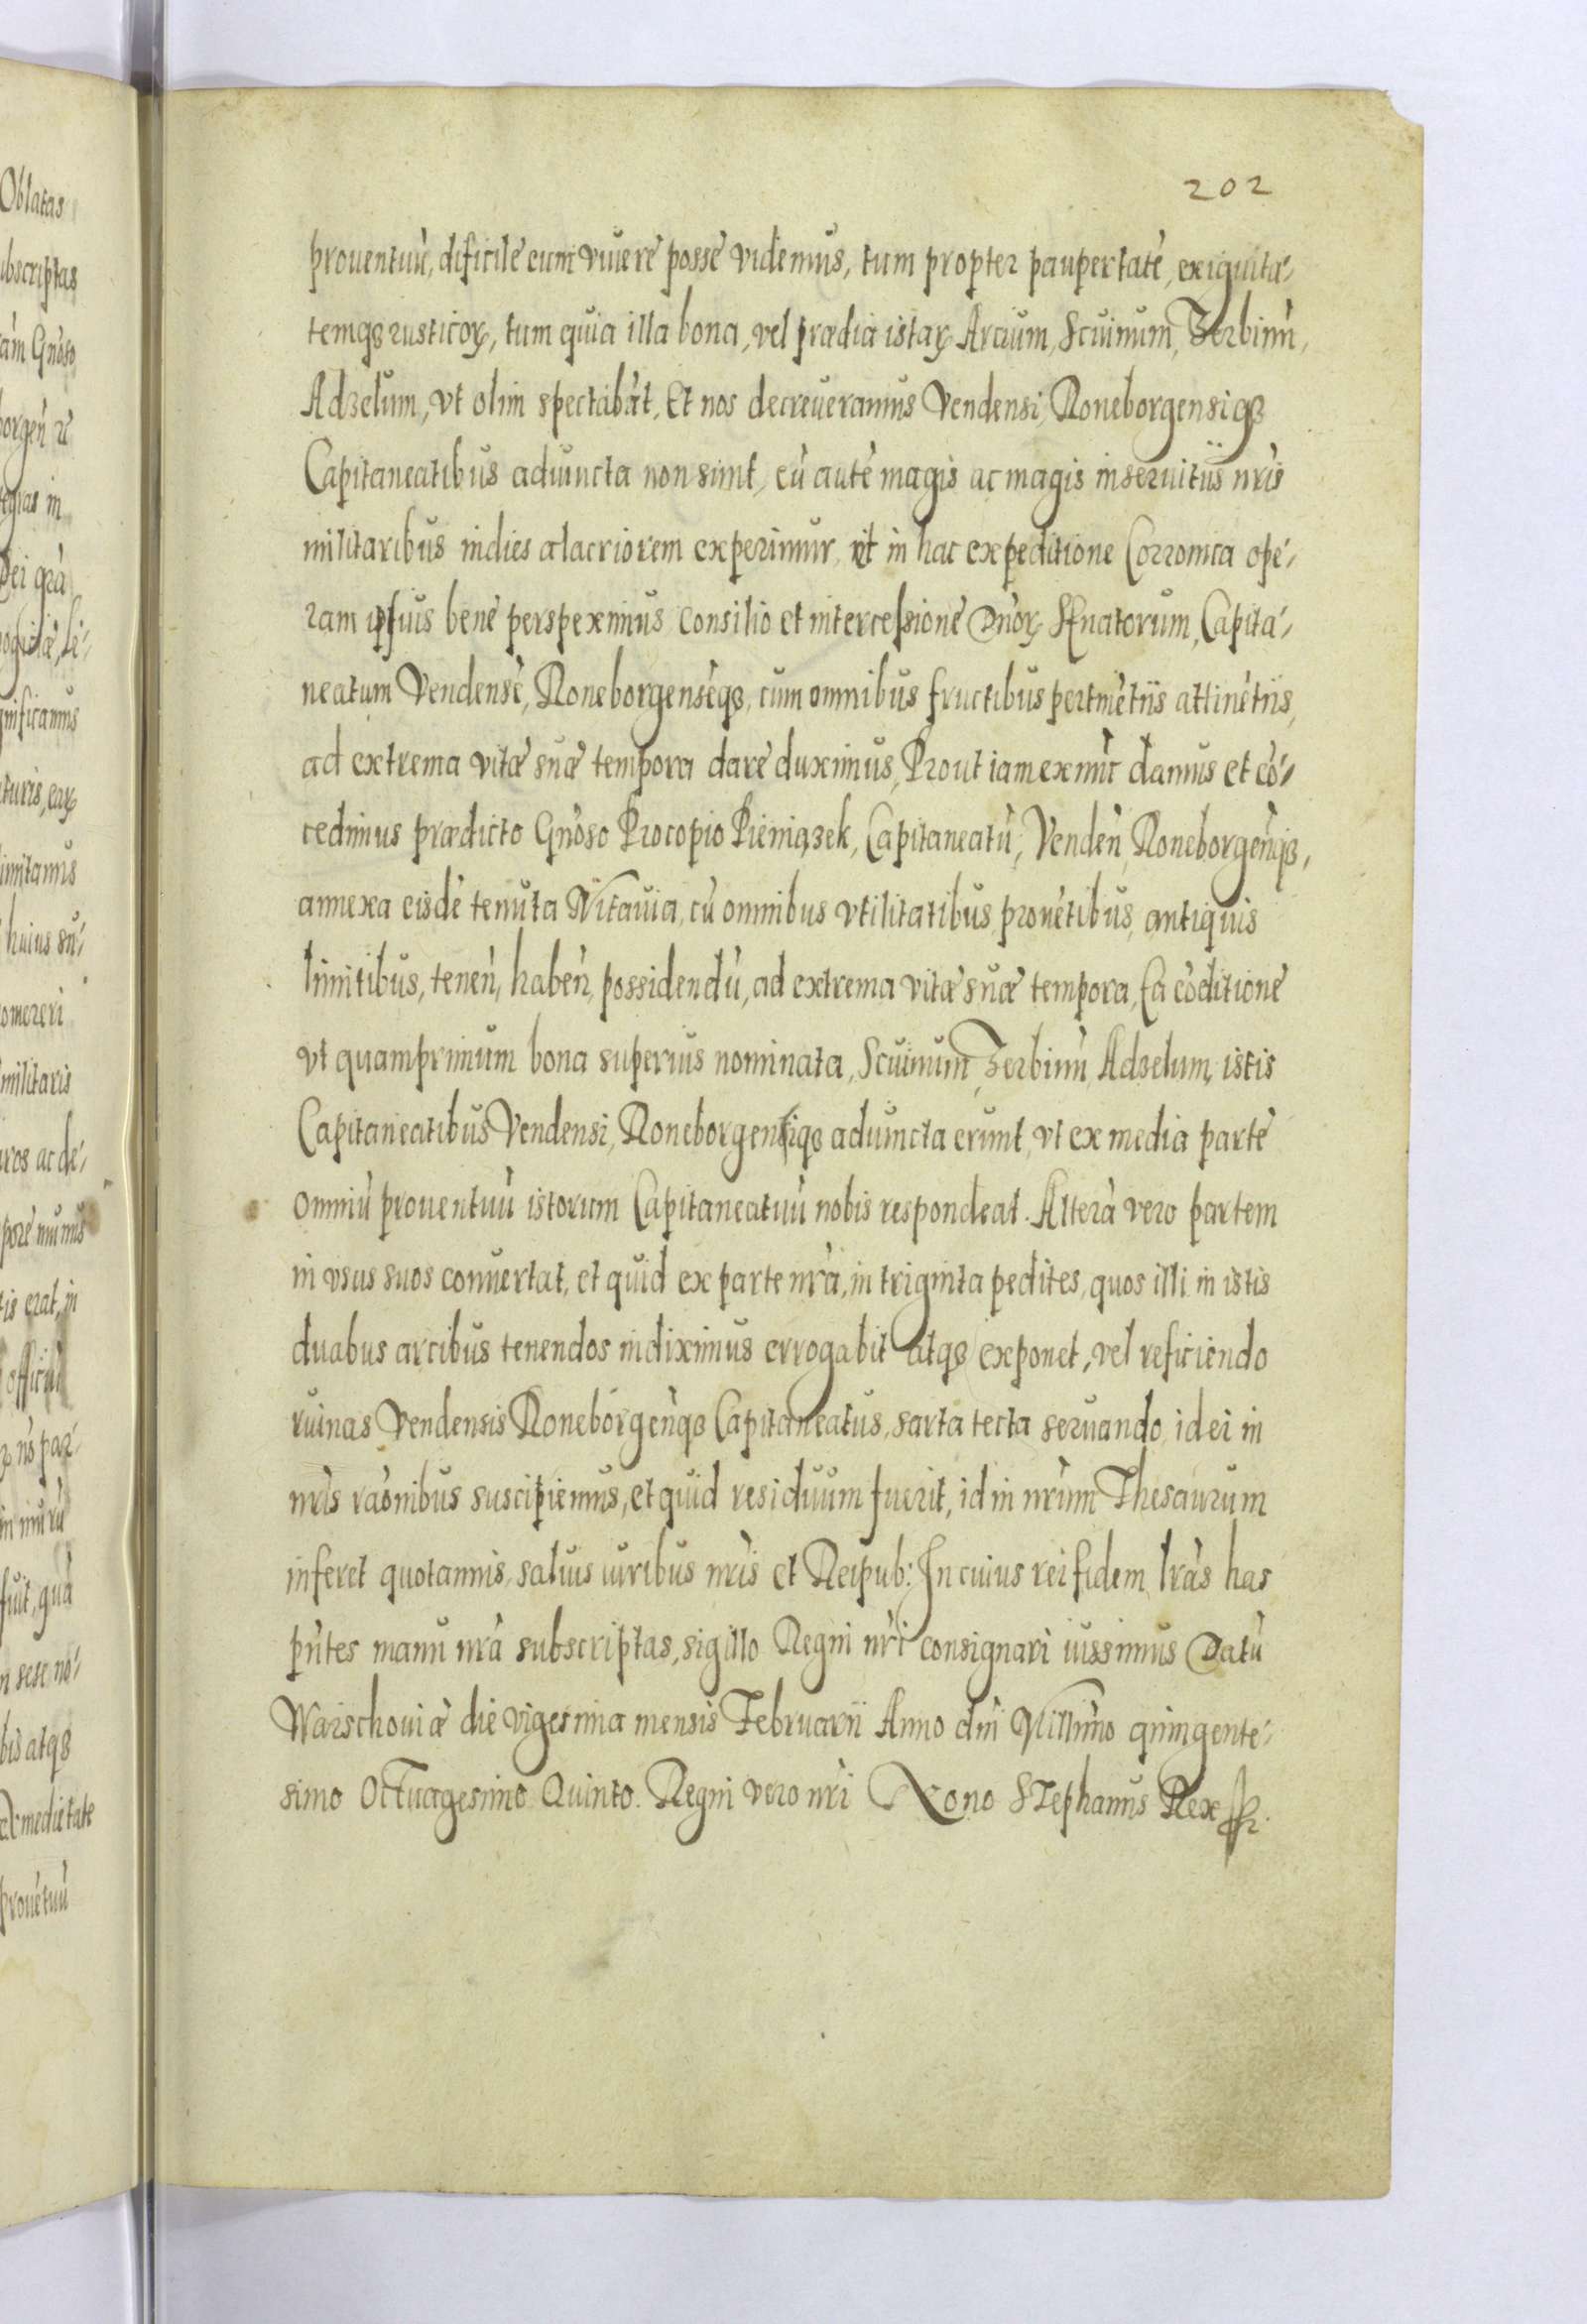 202
prouentuũ, dificile eum viuere posse videmus, tum propter paupertatẽ, exiguita-
temqꝫ rusticoꝝ, tum quia illa bona, vel prædia istaꝝ Arcium, Scuinum, Zerbinũ,
Adzelum, vt olim spectabãt, Et nos decreueramus Vendensi, Roneborgensiqꝫ
Capitaneatibus adiuncta non sint, eũ autẽ magis ac magis in seruitiis nr̃is
militaribus indies alacriorem experimur, et in hac expeditione Corronica ope-
ram ipsius bene perspeximus Consilio et intercessione Dnõꝝ Senatorum, Capita-
neatum Vendensẽ, Roneborgensẽqꝫ, cum omnibus fructibus pertinẽtiis attinẽtiis,
ad extrema vitæ suæ tempora dare duximus, Prout iam ex nũc damus et cõ-
cedimus prædicto Gnõso Procopio Pieniązek, Capitaneatũ, Venden̄ Roneborgen̄qꝫ,
annexa eisdẽ tenuta Nitauia, cũ omnibus vtilitatibus, prouẽtibus, antiquis
limitibus, tenen̄, haben̄, possidendũ, ad extrema vitæ suæ tempora, Ea cõditione
vt quamprimum bona superius nominata, Scuinum, Zerbinũ, Adzelum, istis
Capitaneatibus Vendensi, Roneborgensiqꝫ adiuncta erunt, vt ex media parte
omniũ prouentuũ istorum Capitaneatuũ nobis respondeat. Alterã vero partem
in vsus suos conuertat, et quid ex parte nr̃a, in triginta pedites, quos illi in istis
duabus arcibus tenendos indiximus errogabit atqꝫ exponet, vel reficiendo
ruinas Vendensis Roneborgen̄qꝫ Capitaneatus, sarta tecta seruando, id ei in
nr̃is rãonibus suscipiemus, et quid residuum fuerit, id in nr̃um Thesaurum
inferet quotannis, saluis iuribus nr̃is et Reipub: In cuius rei fidem lr̃as has
pñtes manu nr̃a subscriptas, sigillo Regni nr̃i consignari iussimus Datũ
Warschouiæ die vigesima mensis Februarii Anno dn̄i Millimõ quingente-
simo Octuagesimo Quinto. Regni vero nr̃i Nono Stephanus Rex